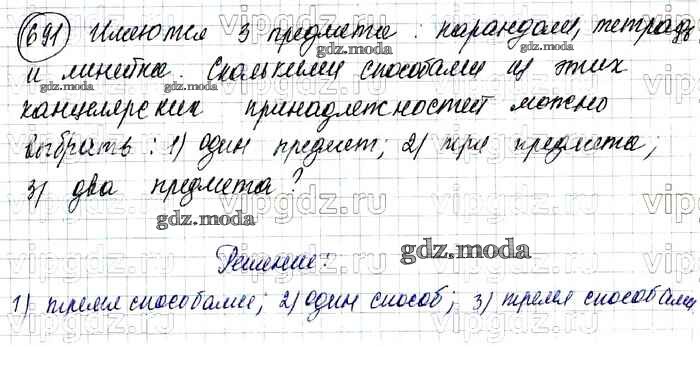 691 Имеются 3 предмета: карандаш, тетрадь
и линейка. Сколькими способами из этих
канцелярских принадлежностей можно
выбрать: 1) один предмет; 2) три предмета;
3) два предмета?
gdz.moda
Решение:
gdz.moda
1) тремя способами; 2) один способ; 3) тремя способами
vipgdz.ru